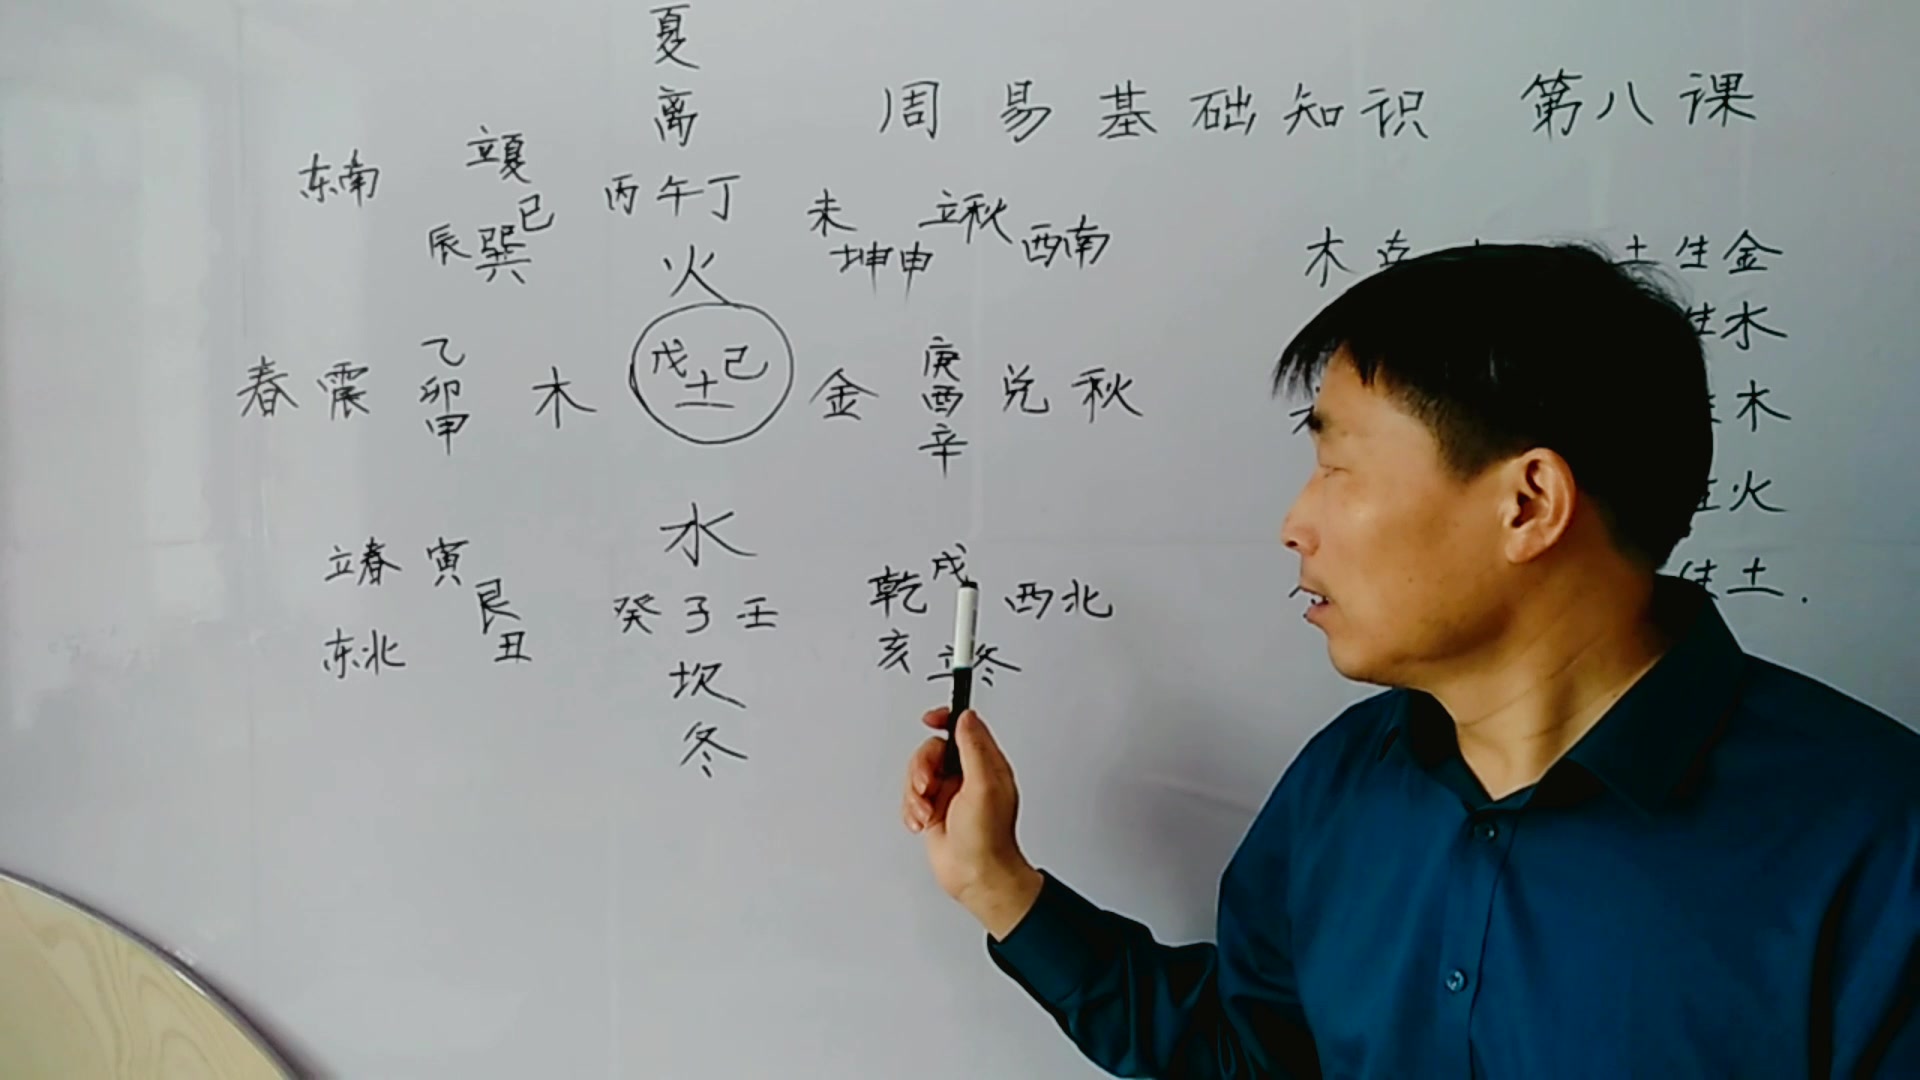 夏
离
周易基础知识 第八课
东南 立夏
丙午丁
未 立秋
辰巽巳
坤申 西南
火
木克 土 土生金
生水
戊土己
春震 乙卯甲 木 金 庚酉辛 兑秋
生木
水
生火
立春 寅
艮
乾戌 西北
癸子壬
生土.
东北 丑
亥 立冬
坎
冬